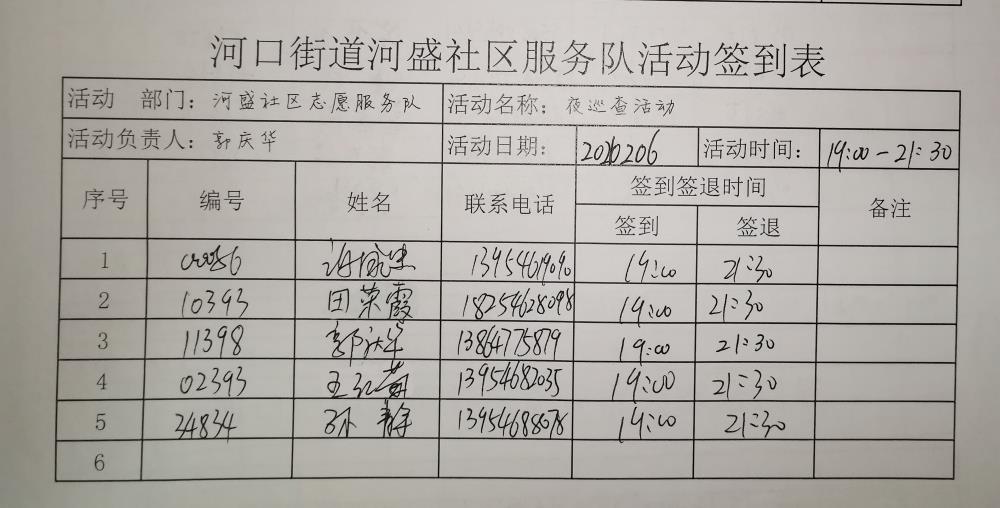 河口街道河盛社区服务队活动签到表
活动 部门：河盛社区志愿服务队 活动名称：夜巡查活动
活动负责人：郭庆华 活动日期： 活动时间：19:00-21:30
序号 编号 姓名 联系电话 签到签退时间 备注
签到 签退
1 13954619090 19:00 21:30
2 10393 田荣霞 18254628098 19:00 21:30
3 11398 13864775879 19:00 21:30
4 02393 13954682035 19:00 21:30
5 24834 孙静 13954688078 19:00 21:30
6